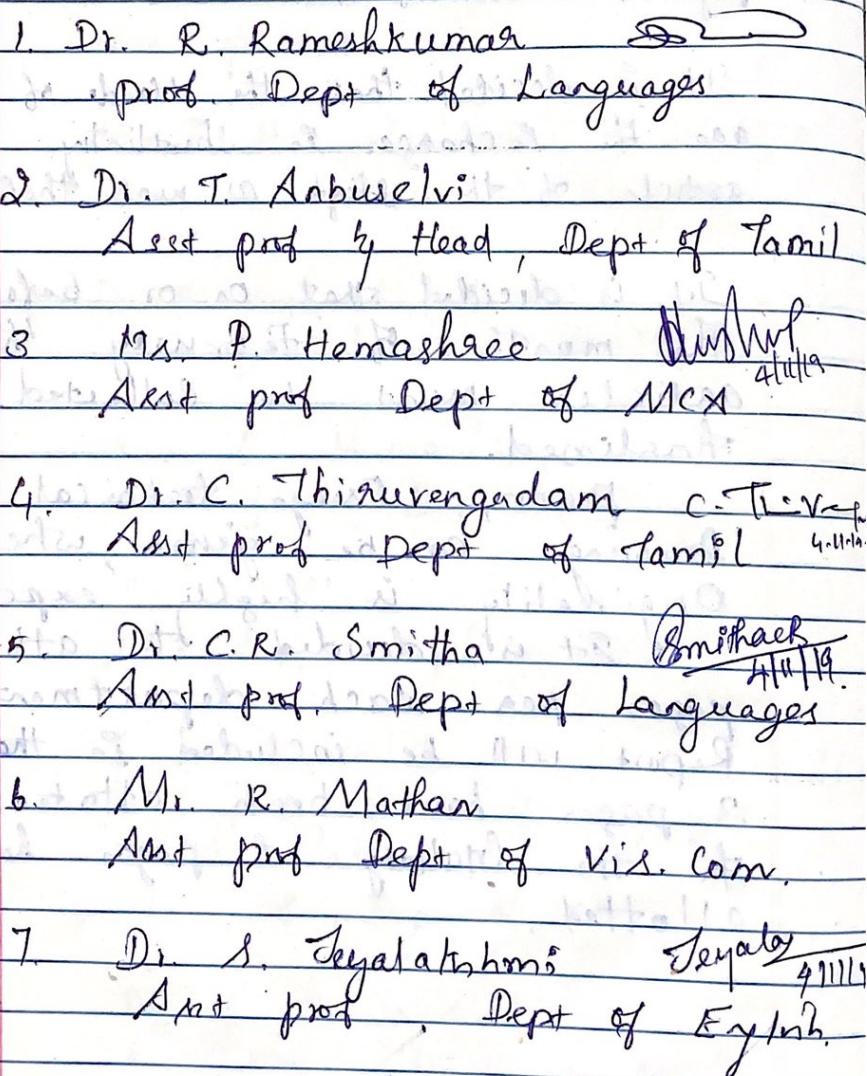 1. Dr. R. Rameshkumar
Prof. Dept of Languages
2. Dr. T. Anbuselvi
Asst prof & Head, Dept of Tamil
3 Ms. P. Hemashree
4/11/19
Asst prof Dept of MCA
4. Dr. C. Thiruvengadam
4.11.19
Asst prof Dept of Tamil
5. Dr. C. R. Smitha SmithaCR
4/11/19.
Asst prof. Dept of Languages
6. Mr. R. Mathan
Asst prof Dept of Vis. Com.
7. Dr. S. Jeyalakshmi Jeyala
4/11/19
Asst prof. Dept of English.